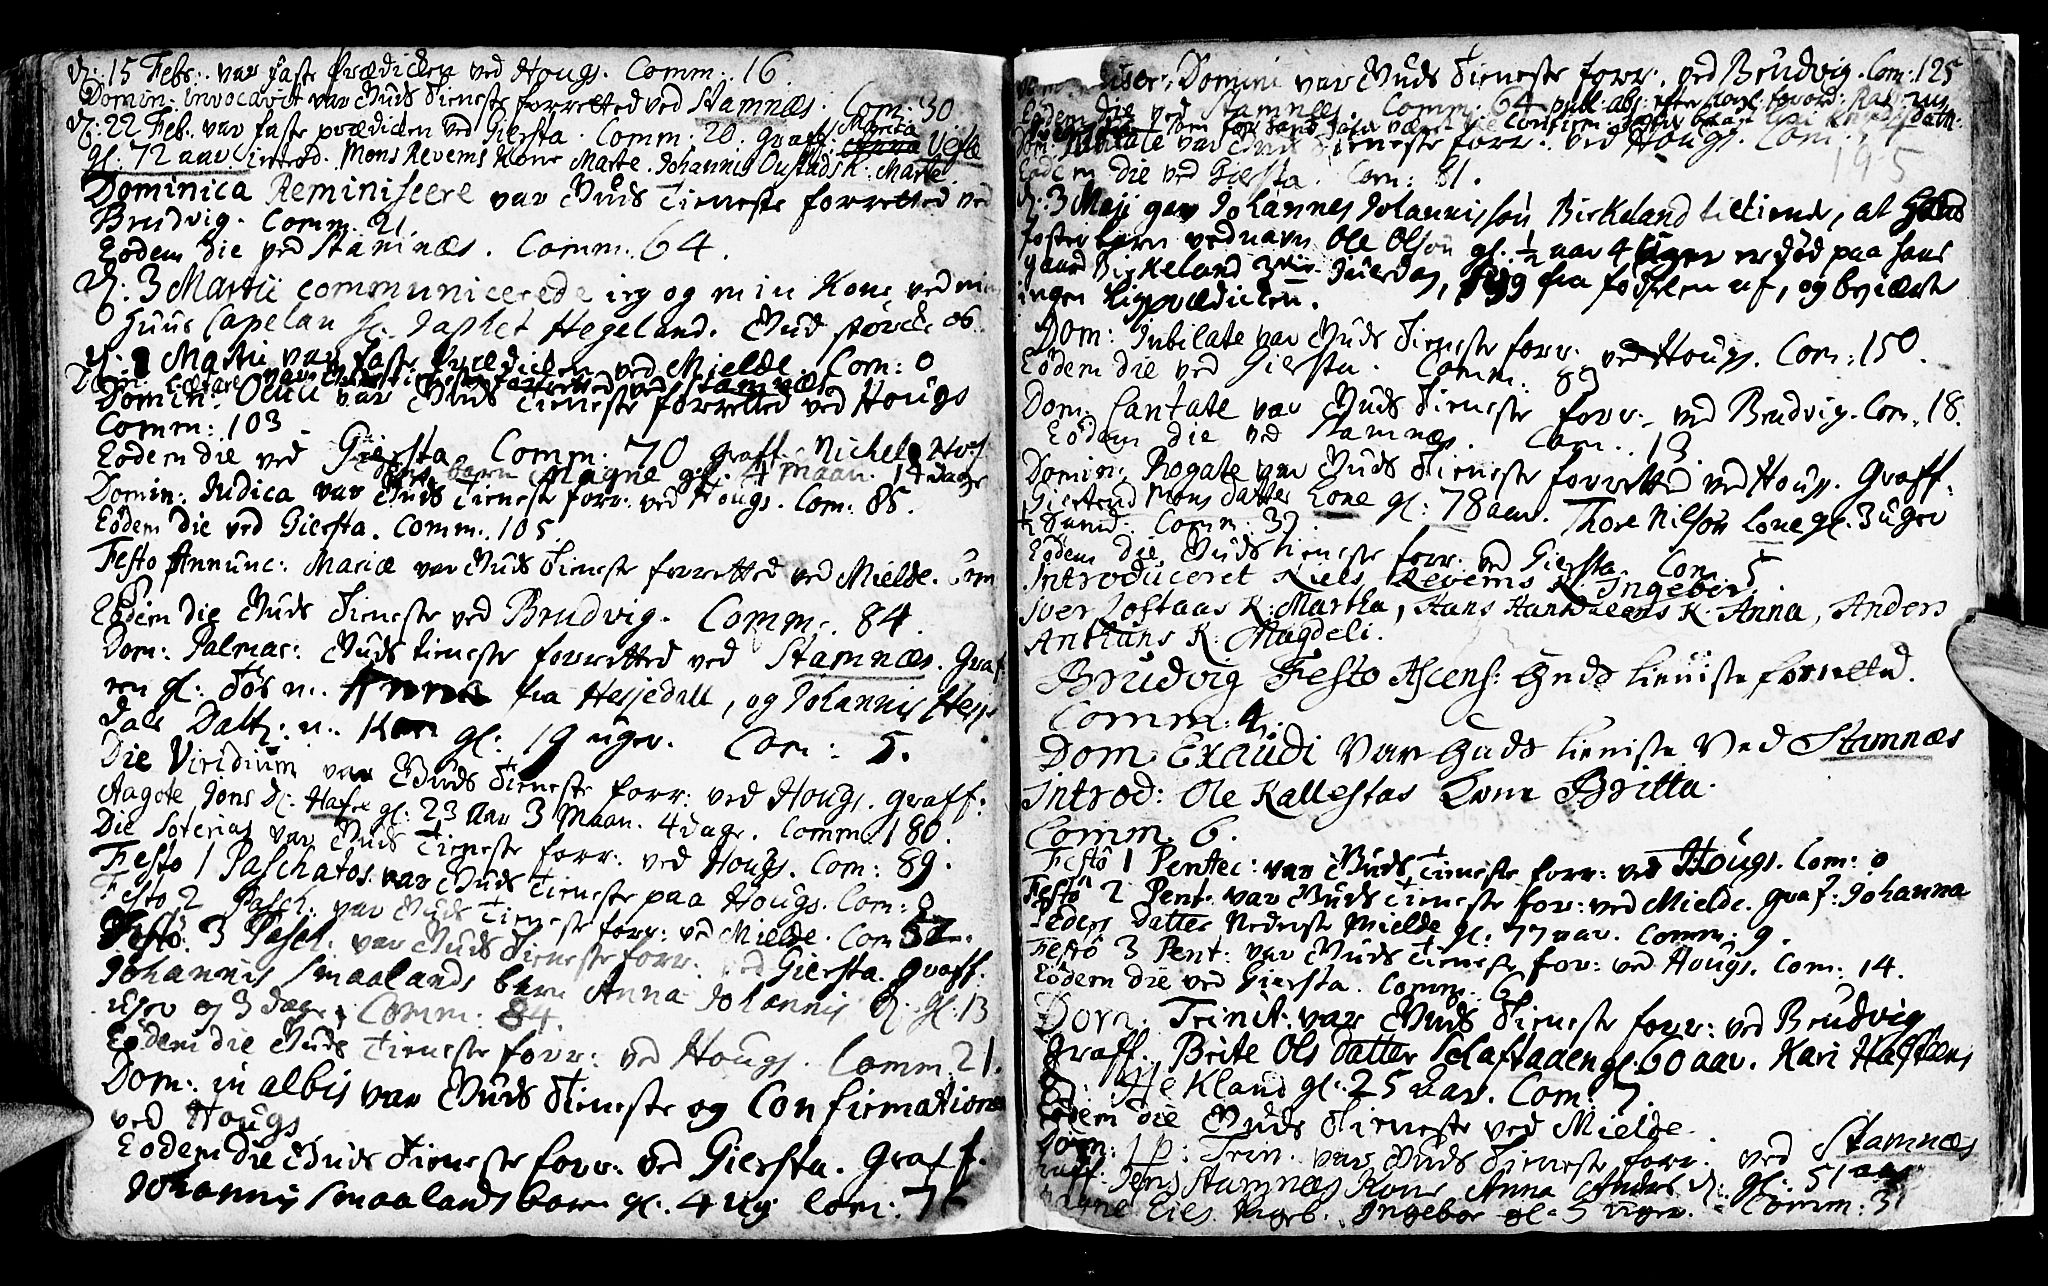 d: 15 Febr: var faste Prædicken ved Hougs. Comm: 16
Domin: Invocavit var Guds Tieneste forretted ved Stamnæs. Com: 30
d: 22 Feb: var faste prædicken ved Giersta. Comm: 20. graff: Marita Vesle
gl: 72 aar introd. Mons Revems Kone Marte. Johannis Oustads K: Marte
Dominica Reminiscere var Guds Tieneste forretted ved
Brudvig. Comm: 21
Eodem die ved Stamnæs. Comm: 64.
d: 3 Martii communicerede ieg og min Kone ved min
Huus Capelan Hr. Japhet Hegeland. Gud støroke os.
d: Martii var faste Prædicken ved Mielde. Com: 0
Dom: Lætare var Guds tieneste forretted ved Stamnæs
Domin: Oculi var Guds Tieneste forretted ved Hougs
Comm: 103
Eodem die ved Giersta Comm: 70 graff. Nichel
barn Magne gl: 4 Maan. 14 dage
Domin: Judica var Guds Tieneste forr: ved Hougs. Com: 88.
Eodem die ved Giersta. Comm: 105
Festo Annunc: Mariæ var Guds Tieneste forretted ved Mielde. Com
Eodem die Guds Tieneste ved Brudvig. Comm: 84.
Dom: Palmar: Guds tieneste forretted ved Stamnæs. Graf
ren gl: fra Hesjedall, og Johannis Hesje
dals Datt: n: Kari gl: 19 uger. Com: 5.
Die Viridium var Guds Tieneste forr: ved Hougs. graff:
Aagote Jons d: Hafre gl: 23 Aar 3 Maan. 4 dage. Comm: 180.
Die Soterias var Guds Tieneste forr: ved Hougs. Com: 89.
Festo 1 Paschatos var Guds Tieneste paa Hougs. Com: 0
Festo 2 Pasch: var Guds Tieneste forr: ved Mielde. Com 57.
Festo 3 Pasch: var Guds Tieneste forr: ved Giersta. Graff.
Johannis Smaalands barn Anna Johannis d: gl: 13
uger og 3 dage. Comm: 84.
Eodem die Guds Tieneste forr: ved Hougs. Comm 21.
Dom: in albis var Guds Tieneste og Confirmation
ved Hougs
Eodem die Guds Tieneste forr: ved Giersta. Graff.
Johannis Smaalands barn gl: 4 Ug Com: 7
Miser: Domini var Guds Tieneste forr: ved Brudvig. Com: 125
Eodem die ved Stamnæs. Comm: 64 publ: abs:
Dom: Jubilate var Guds Tieneste forr: ved Hougs. Com:
195
Eodem die ved Giersta. Com: 81.
d: 3 Maji gav Johannes Johannissøn Birkeland tilkiende, at
foster barn ved navn Ole Olsøn gl: ½ aar 4 Uger er død paa hans
gaard Birkeland fra fødselen af, og begierte
ingen Ligprædicken.
Dom: Jubilate var Guds Tieneste forr: ved Hougs. Com: 150.
Eodem die ved Giersta. Comm:
Dom: Cantate var Guds Tieneste forr: ved Brudvig. Com: 18.
Eodem die ved Stamnæs. Com: 13.
Domin: Rogate var Guds Tieneste forretted ved Hougs. Graff.
Giertrud Mons datter Lone gl: 78 aar. Thore Nilssøn Lone gl: 3 uger
Comm: 37.
Eodem die Guds tieneste forr: ved Giersta. Com: 5
Introduceret Niels Revems K: Ingebor,
Iver Loftaas K: Martha, Hans K: Anna, Anders
Anthuns K: Magdeli.
Brudvig Festo Ascens: Guds tieniste forretted.
Comm: 4.
Dom Exaudi var Guds tieniste ved Stamnæs
Introd: Ole Kallestas Kone Britta.
Comm: 6.
Festo 1 Pentec: var Guds Tieneste forr: ved Hougs. Com: 0
Festo 2 Pent: var Guds Tieneste for: ved Mielde. Graf: Johanna
Peders datter Nederste Mielde gl: 77 aar. Comm: 9.
Festo 3 Pent: var Guds Tieneste for: ved Hougs. Com: 14.
Eodem die ved Giersta. Comm: 6
Dom. Trinit: var Guds Tieneste forr: ved Brudvig
Graff. Brite Ols datter gl: 60 aar. Kari
d: Hekland gl: 25 Aar. Com: 7.
Eodem die Guds Tieneste ved Mielde
Dom: 1 p: Trin. var Guds Tieneste forr: ved Stamnæs
Graff: Jens Stamnæs Kone Anna Anders d: gl: 51 aar
Ingebor gl: 5 uger. Comm: 31